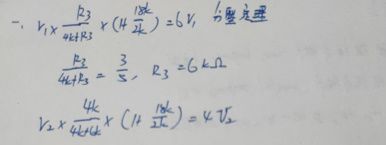 一、 V₁ × R3/(4k+R3) × (1+ 18k/2k) = 6V₁ 分壓定理
R3/(4k+R3) = 3/5 , R3 = 6kΩ
V₂ × 4k/(4k+6k) × (1+ 18k/2k) = 4V₂